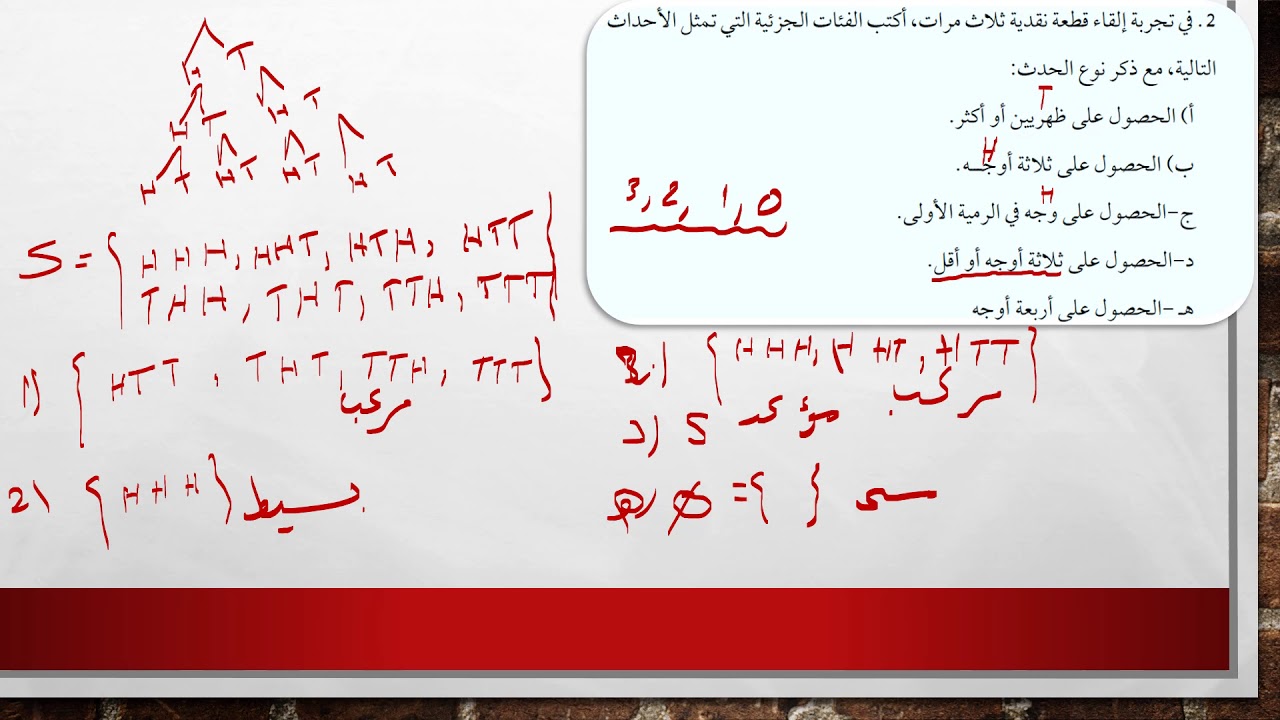 2. في تجربة إلقاء قطعة نقدية ثلاث مرات، أكتب الفئات الجزئية التي تمثل الأحداث
التالية، مع ذكر نوع الحدث:
T
أ) الحصول على ظهريين أو أكثر.
H
ب) الحصول على ثلاثة أوجـــه.
H
ج-الحصول على وجه في الرمية الأولى.
3, 2, 1, 0
د-الحصول على ثلاثة أوجه أو أقل.
هـ -الحصول على أربعة أوجه
H T
H T H T
H T H T H T H T
S = { HHH, HHT, HTH, HTT
THH, THT, TTH, TTT }
1) { HTT , THT, TTH, TTT }
مركب
2) { HHH } بسيط
{ HHH, HHT, HTT }
مركب
د) S مؤكد
هـ) ∅ = { }